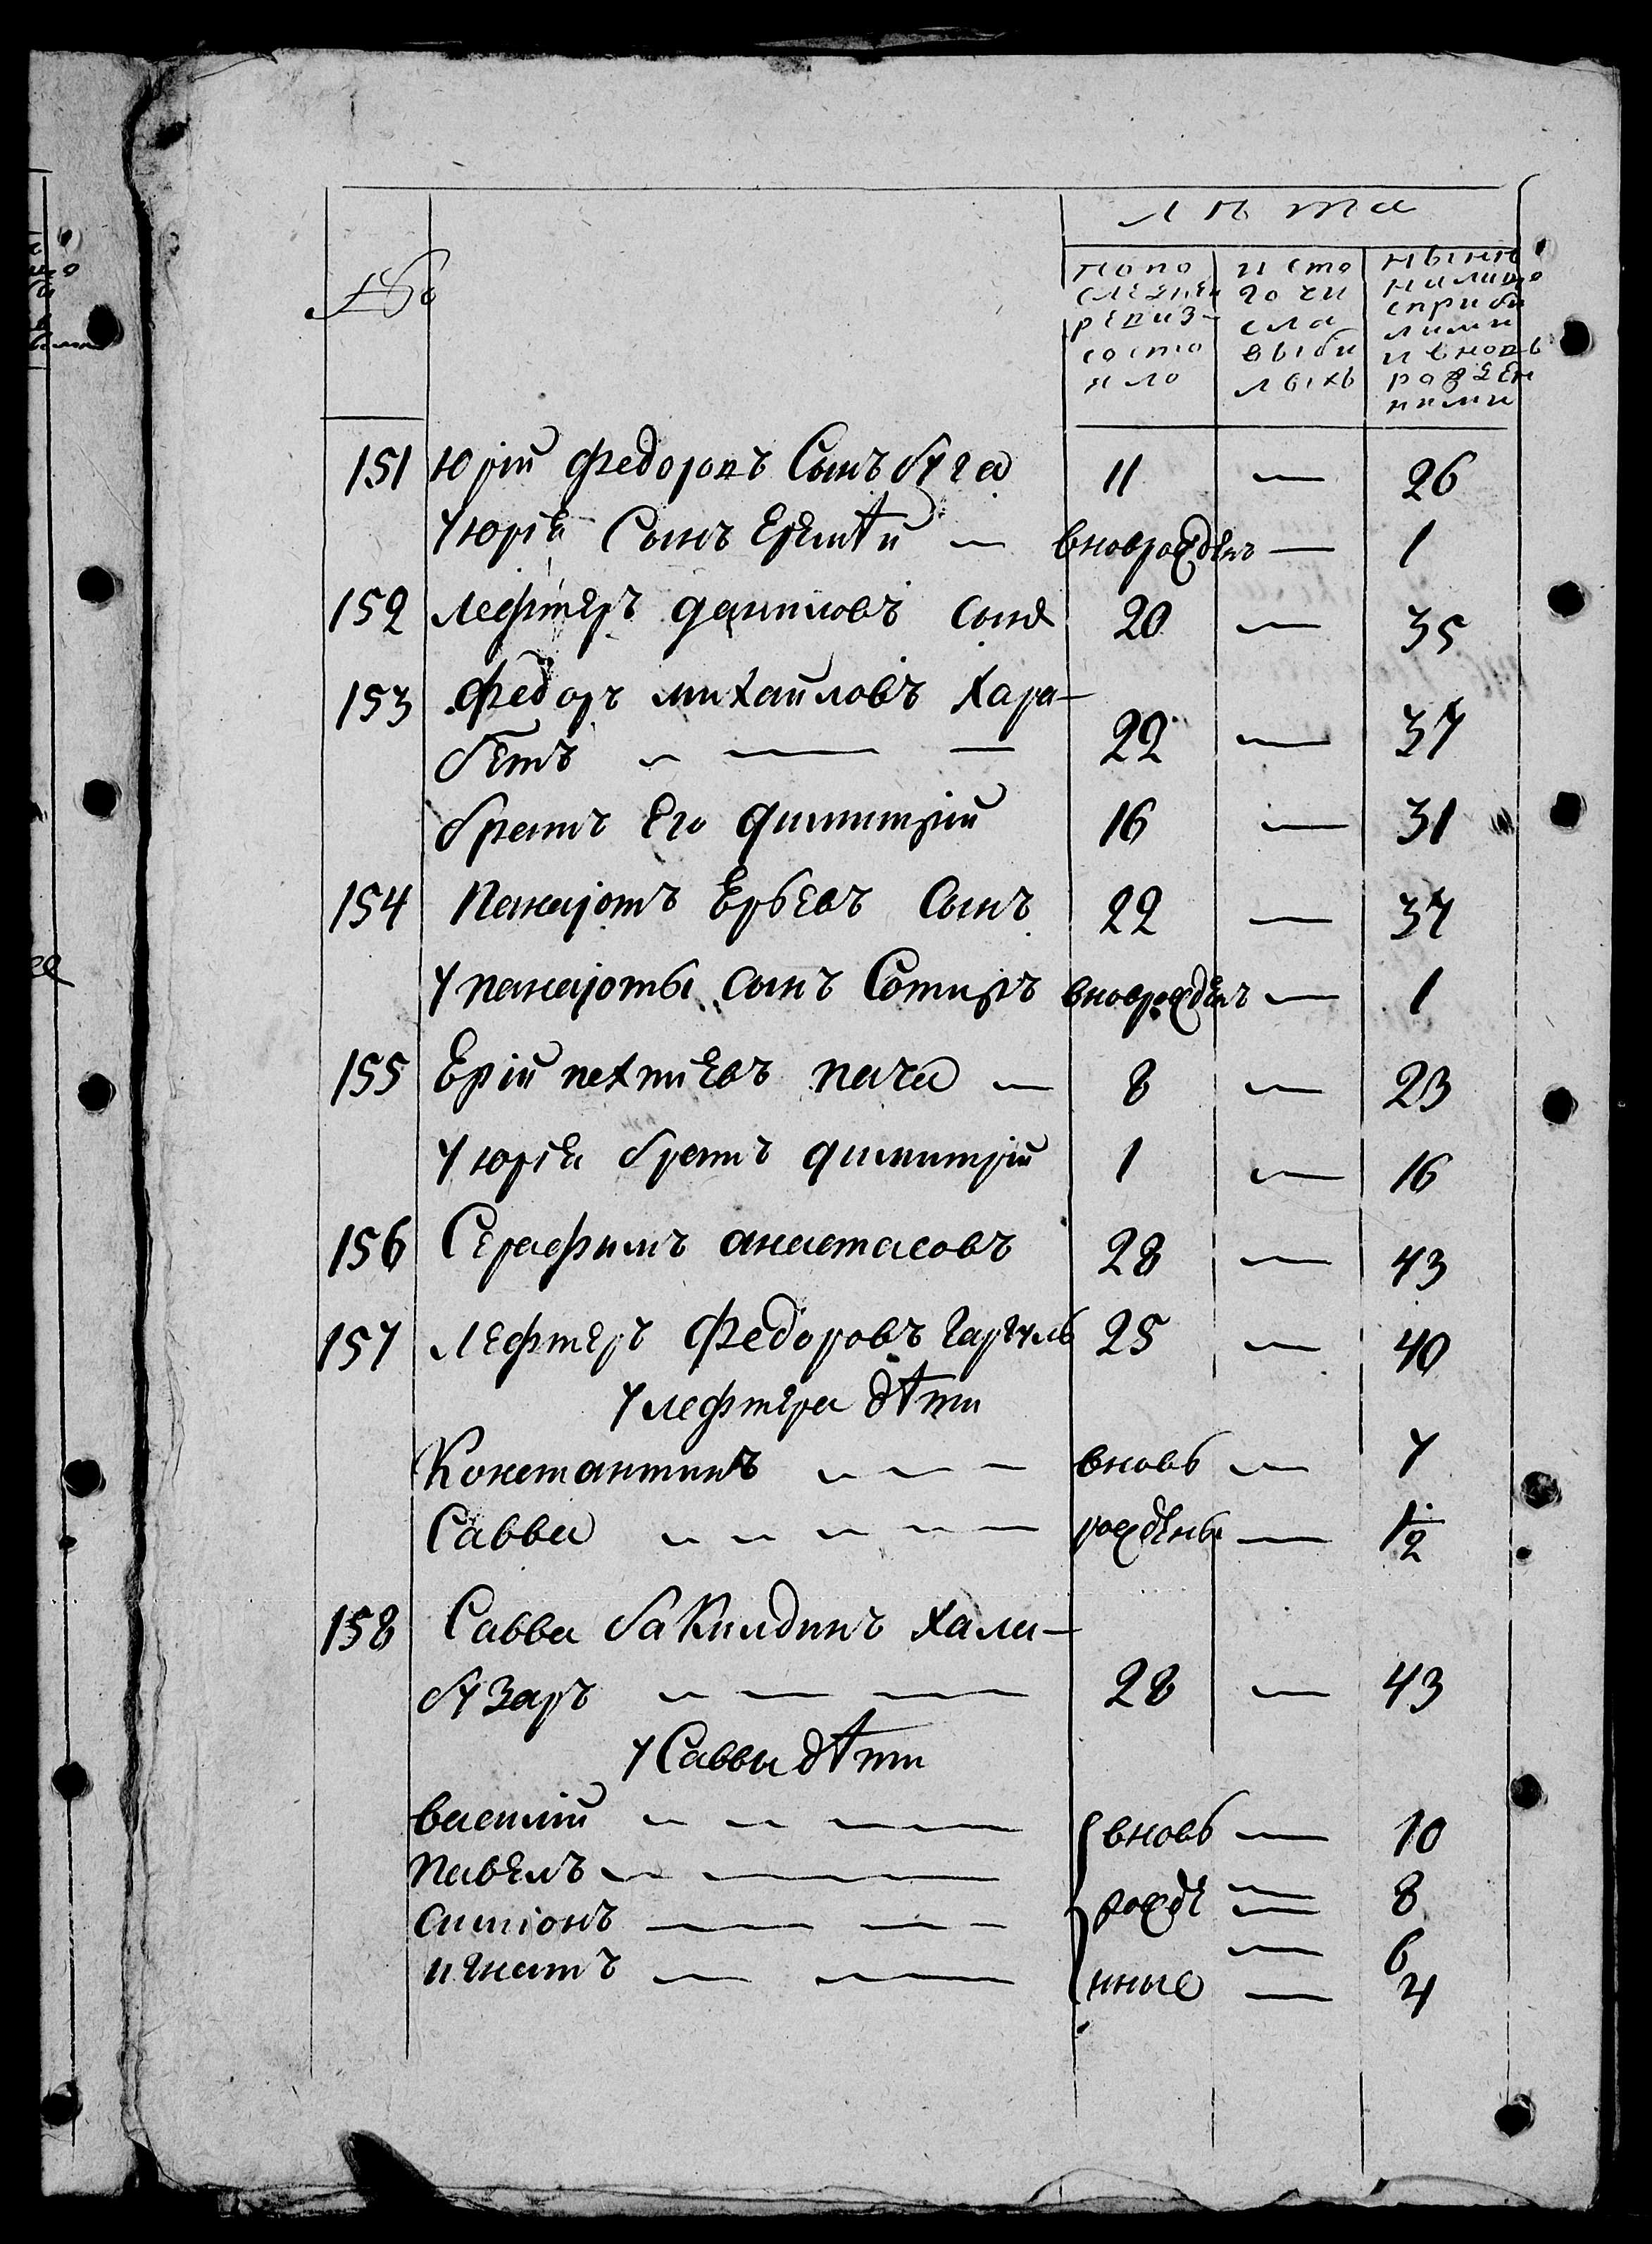 лѣта
№
по по
следней
ревиз-
состо
яло
и сто
го чи
сла
выбы
лыхъ
нынѣ
налицо
с прибы
лыми
и вновь
ражден
ными
151 Юрій Федоровъ Сынъ буга 11 — 26
У Юрія Сынъ Еремѣй — вноврожденъ — 1
152 Лефтеръ Даниловъ сынъ 20 — 35
153 Федоръ Михайловъ Хара-
бетъ — — — 22 — 37
братъ Его Димитрій 16 — 31
154 Панаіотъ Ерьевъ Сынъ 22 — 37
У панаіоты сынъ Сотиръ вноврожденъ — 1
155 Ерій пехтіевъ пача — 8 — 23
У Юрія братъ Димитрій 1 — 16
156 Серафимъ анастасовъ 28 — 43
157 Лефтеръ Федоровъ Гаргуль 25 — 40
У лефтера дѣти
Константинъ — — — вновь — 7
Савва — — — — — рождены — 1/2
158 Савва бакилдинъ Хала-
бузаръ — — — 28 — 43
У Саввы дѣти
Василій — — — вновь — 10
Павелъ — — рожде — 8
Симіонъ — — — — 6
Игнатъ — — нные — 4